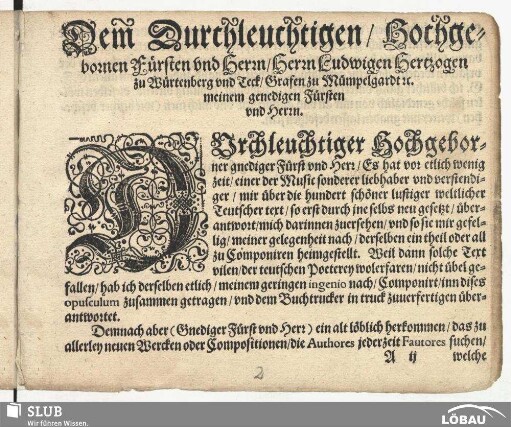 Dem̃ Durchleuchtigen / Hochge-
bornen Fürsten vnd Herrn / Herrn Ludwigen Hertzogen
zu Würtenberg vnd Teck / Grafen zu Mümpelgardt ꝛc.
meinem genedigen Fürsten
vnd Herrn.
DUrchleuchtiger Hochgebor-
ner gnediger Fürst vnd Herr / Es hat vor etlich wenig
zeit / einer der Music sonderer liebhaber vnd verstendi-
ger / mir über die hundert schöner lustiger weltlicher
Teutscher text / so erst durch jne selbs neu gesetzt / über-
antwort / mich darinnen zuersehen / vnd so sie mir gefel-
lig / meiner gelegenheit nach / derselben ein theil oder all
zu Componiren heimgestellt. Weil dann solche Text
vilen / der teutschen Poeterey wolerfaren / nicht übel ge-
fallen / hab ich derselben etlich / meinem geringen ingenio nach / Componirt / inn dises
opusculum zusammen getragen / vnd dem Buchtrucker in truck zuuerfertigen über-
antwortet.
Demnach aber (Gnediger Fürst vnd Herr) ein alt löblich herkommen / das zu
allerley neuen Wercken oder Compositionen / die Authores jederzeit Fautores suchen /
A ij welche
2
SLUB
Wir führen Wissen.
LÖBAU